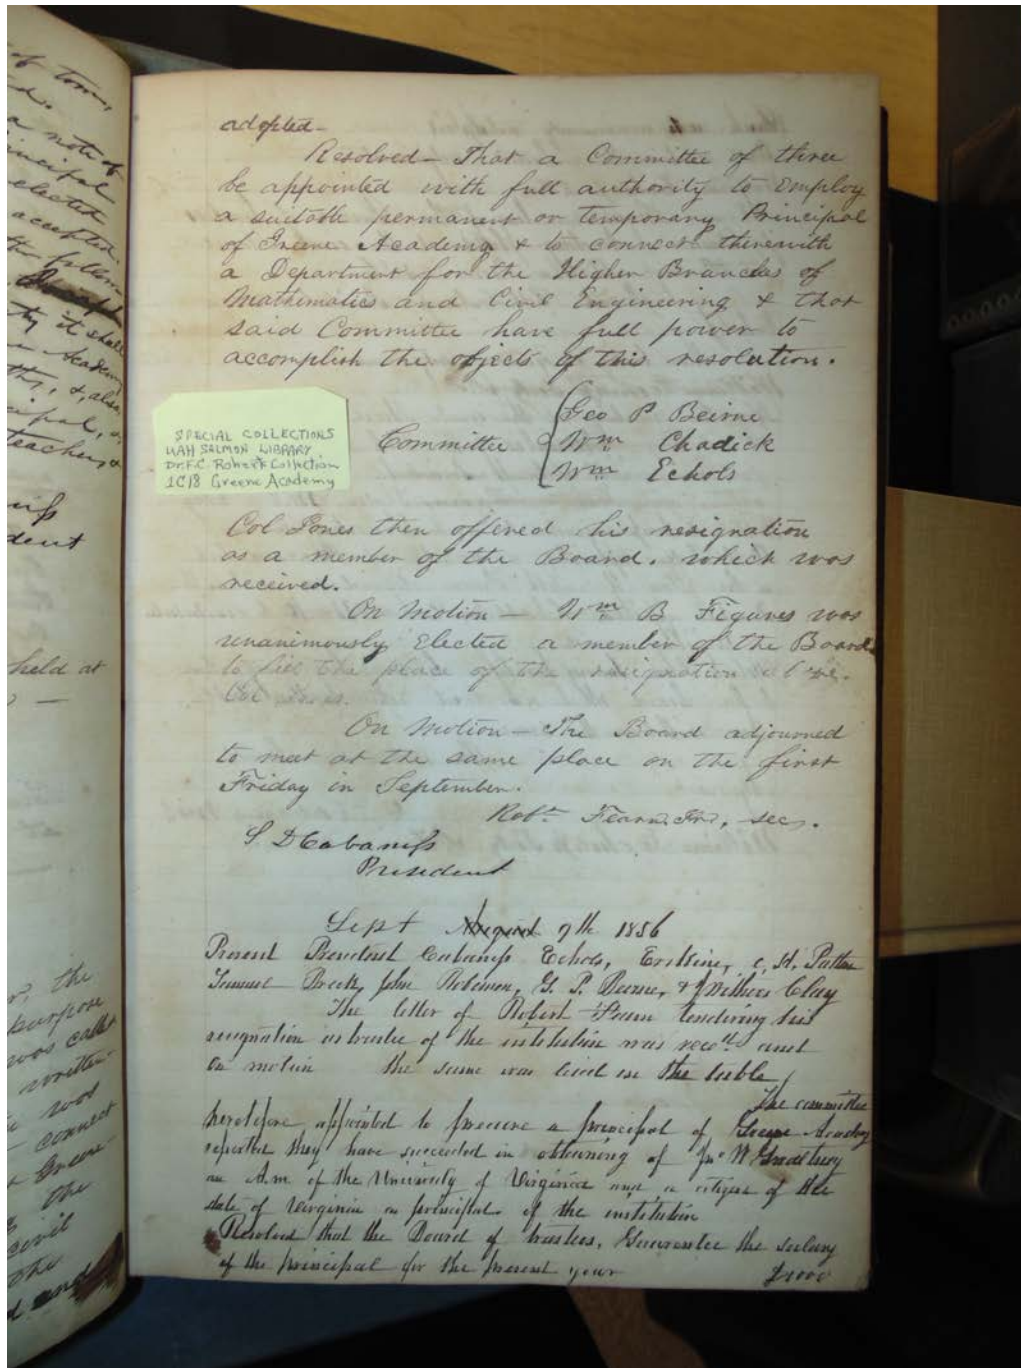 of town,
a note of
Principal
elected
accepted.
it shall
Academy
teachers &
held at
adopted—
Resolved — That a Committee of three
be appointed with full authority to Employ
a suitable permanent or temporary Principal
of Greene Academy & to connect therewith
a Department for the Higher Branches of
Mathematics and Civil Engineering & that
said Committee have full power to
accomplish the objects of this resolution.
Geo P Beirne
Committee Wm Chadick
Wm Echols
SPECIAL COLLECTIONS
UAH SALMON LIBRARY
Dr. F.C. Roberts Collection
1C18 Greene Academy
Col Jones then offered his resignation
as a member of the Board, which was
received.
On Motion — Wm B Figures was
unanimously Elected a member of the Board
to fill the place of the resignation of
Col Jones.
On Motion — The Board adjourned
to meet at the same place on the first
Friday in September.
Robt Fearn Jr, sec.
S. D Cabaniss
President
Sept August 9th 1856
Present President Cabaniss Echols, Erskine, C. H. Patton
Breck, John Robinson, G. P. Beirne, & J Withers Clay
The letter of Robert Fearn tendering his
resignation as trustee of the institution was recd and
on motion the same was laid on the table
The committee
heretofore appointed to procure a principal of Greene Academy
reported they have succeeded in obtaining of Jno W
an A.m of the University of Virginia and a citizen of the
state of Virginia as principal of the institution
Resolved that the Board of trustees, Guarantee the salary
of the principal for the present year $1000
the
purpose
was called
written
was
connect
Greene
the
civil
the
and